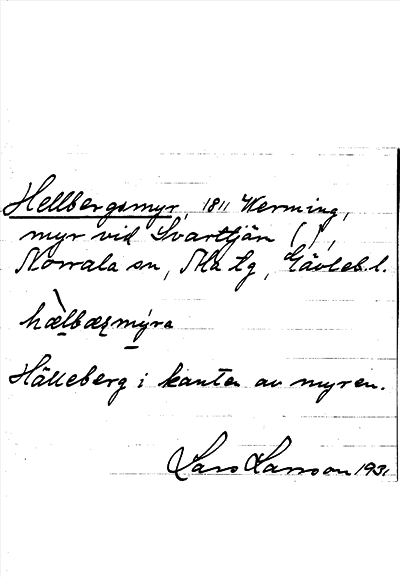 Hellbergsmyr, 1811 Werming,
myr vid Svarttjän ( ),
Norrala sn, Ala tg, Gävleb. l.
hæ̀lbærsmýra
Hälleberg i kanten av myren.
Lars Larsson 1931